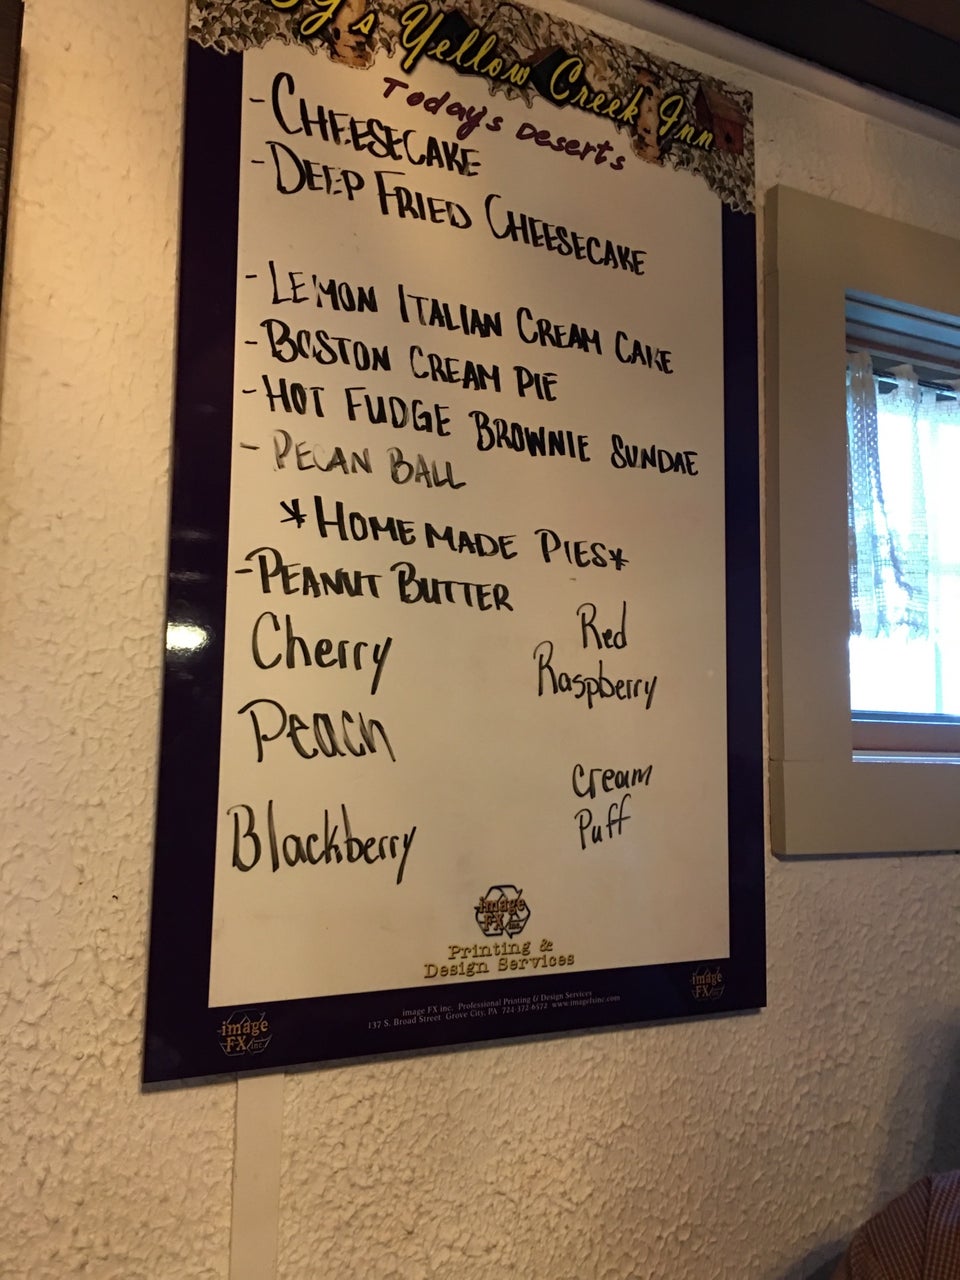 Yellow Creek Inn
Today's Deserts
- CHEESECAKE
- DEEP FRIED CHEESECAKE
- LEMON ITALIAN CREAM CAKE
- BOSTON CREAM PIE
- HOT FUDGE BROWNIE SUNDAE
- PECAN BALL
*HOMEMADE PIES*
- PEANUT BUTTER
Cherry
Red
Raspberry
Peach
Cream
Puff
Blackberry
image
FX inc.
Printing &
Design Services
image FX inc. Professional Printing & Design Services
137 S. Broad Street Grove City, PA 724-372-6572 www.imagefxinc.com
image
FX inc.
image
FX inc.